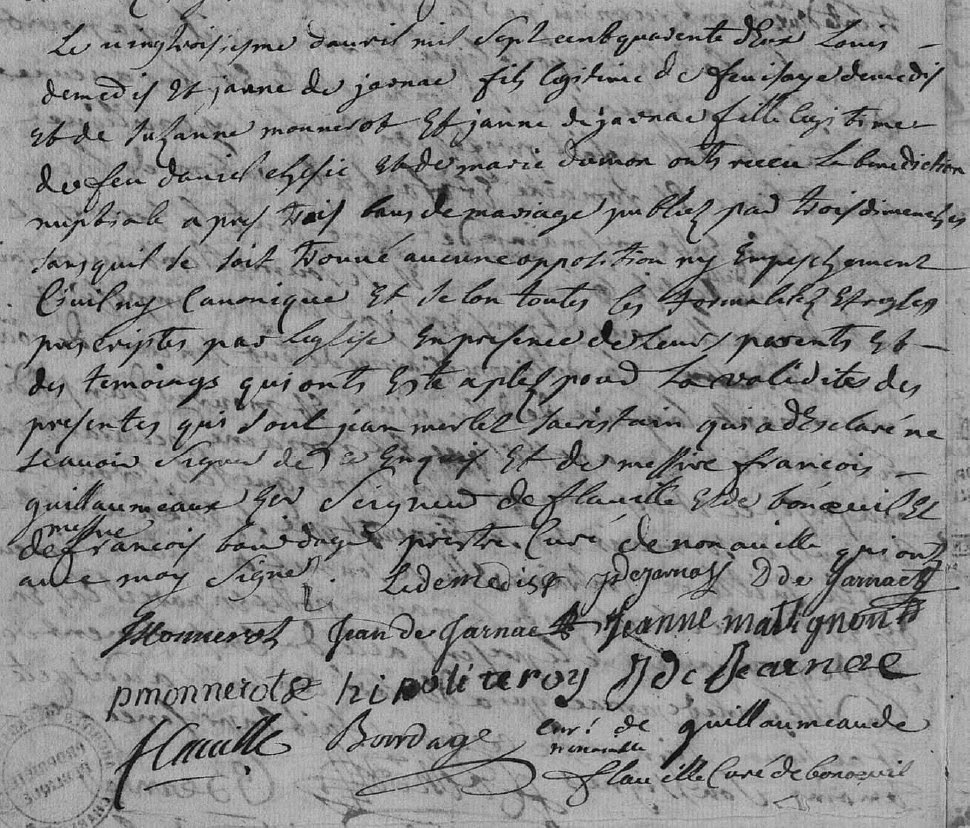 Le vingtroisieme dauril mil sept cent quarente deux Louis
demedis et janne de jarnac fils legitime de feu isaye demedis
et de suzanne monnerot et janne de jarnac fille legitime
de feu daniel et de marie dumon ont receu la benediction
nuptiale apres trois bans de mariage publiez par trois dimenches
sans quil se soit trouvé aucune opposition ny empeschement
Civil ny Canonique et selon toutes les formalitez et regles
prescriptes par leglise en presence de leurs parents et
des temoings qui onts esté apleź pour la validités des
presentes qui sont jean merlet sacristain qui a desclaré ne
scavoir signer de ce enquis et de messire francois
guillaumeaux Seigneur de flaville et de bonoeuil et
de messire francois bourdage prestre Curé de nonaville qui ont
avec moy signer L demedis jdejarnac D de Jarnac
Monnerot Jean de Jarnac Jeanne matignon
pmonnerot hipoliteroy J de Jearnac
flaville Bourdage curé de nonaville guillaumeaude
flaville Curé de bonoeuil